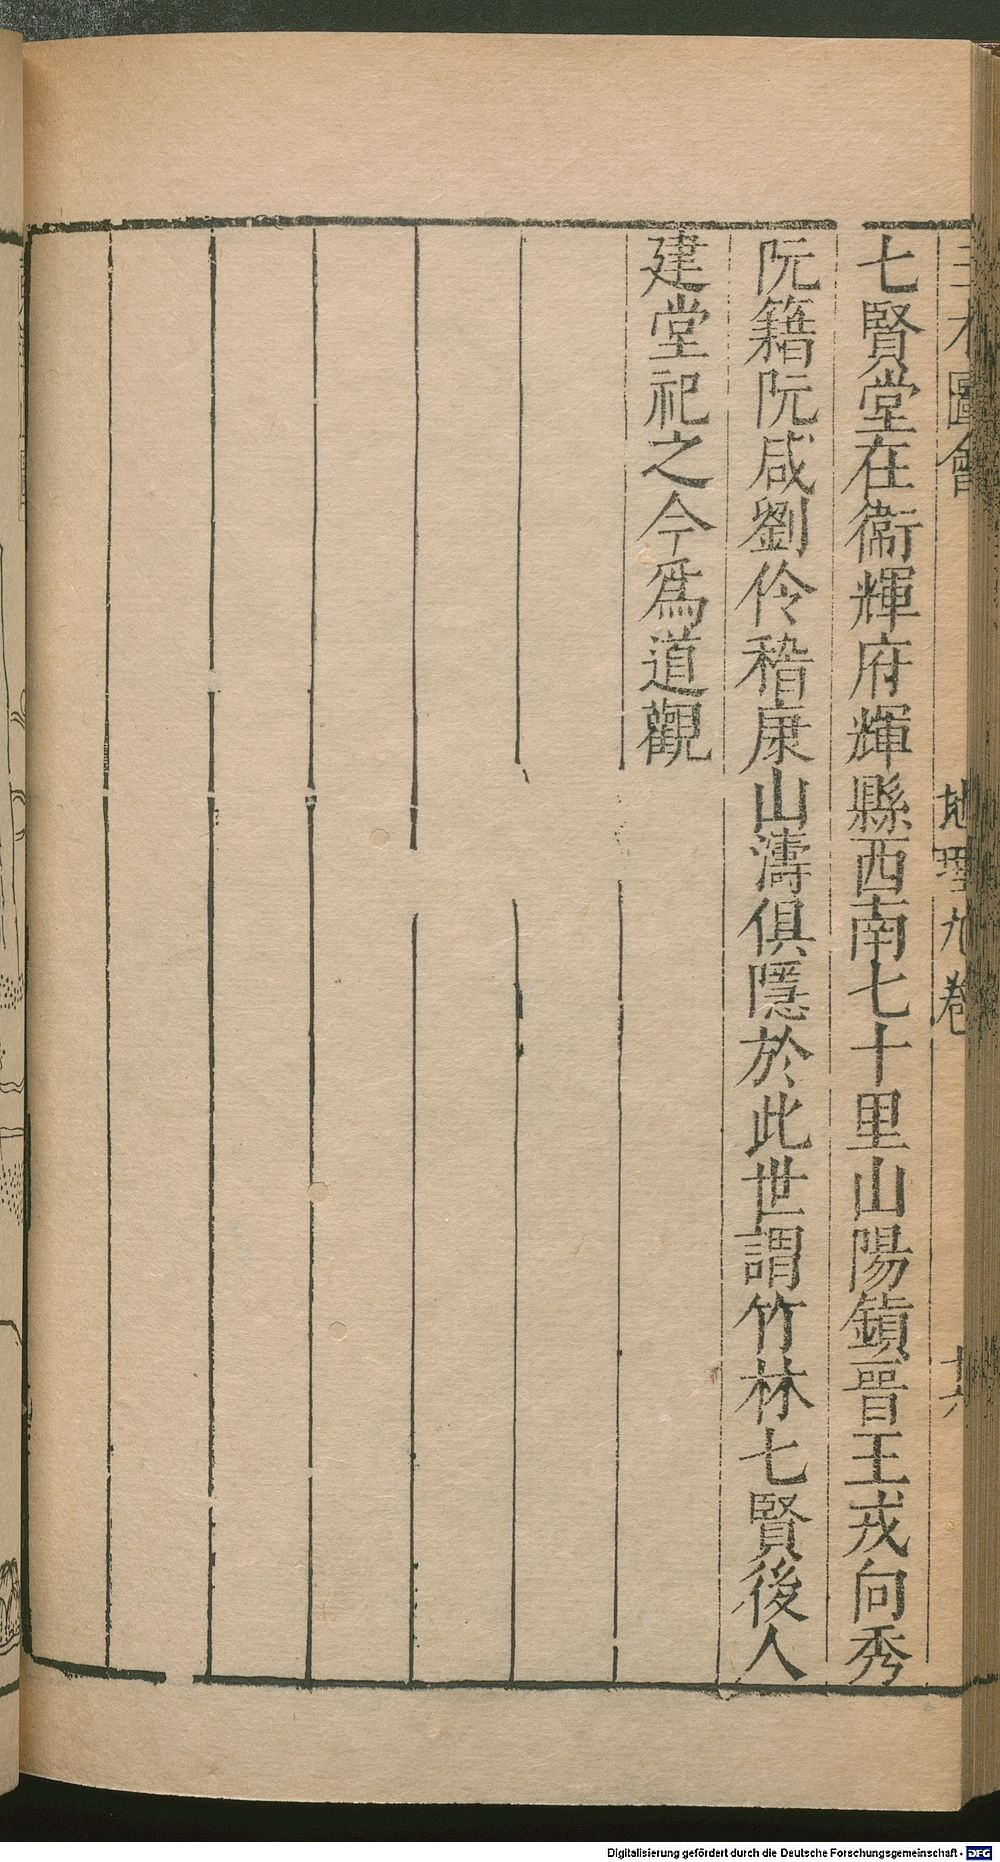 三才圖會 地理九卷 共
七賢堂在衞輝府輝縣西南七十里山陽鎮晉王戎向秀
阮籍阮咸劉伶嵇康山濤俱隱於此世謂竹林七賢後人
建堂祀之今爲道觀
Digitalisierung gefördert durch die Deutsche Forschungsgemeinschaft - DFG